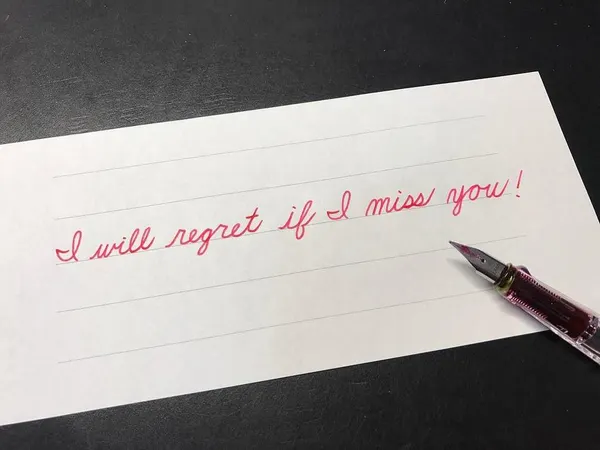 I will regret if I miss you!